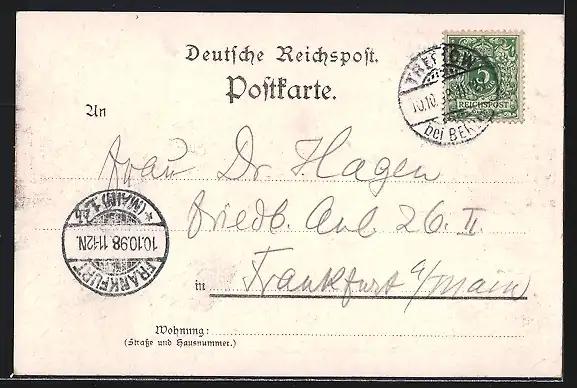 Deutsche Reichspost.
Postkarte.
5
REICHSPOST
TREPTOW
10.10.
bei BERLIN
An
Frau Dr. Hagen
Friedb. Anl. 26. II.
in Frankfurt a/Main
FRANKFURT
(MAIN) 1.
10.10.98. 11-12N.
Wohnung:
(Straße und Hausnummer.)